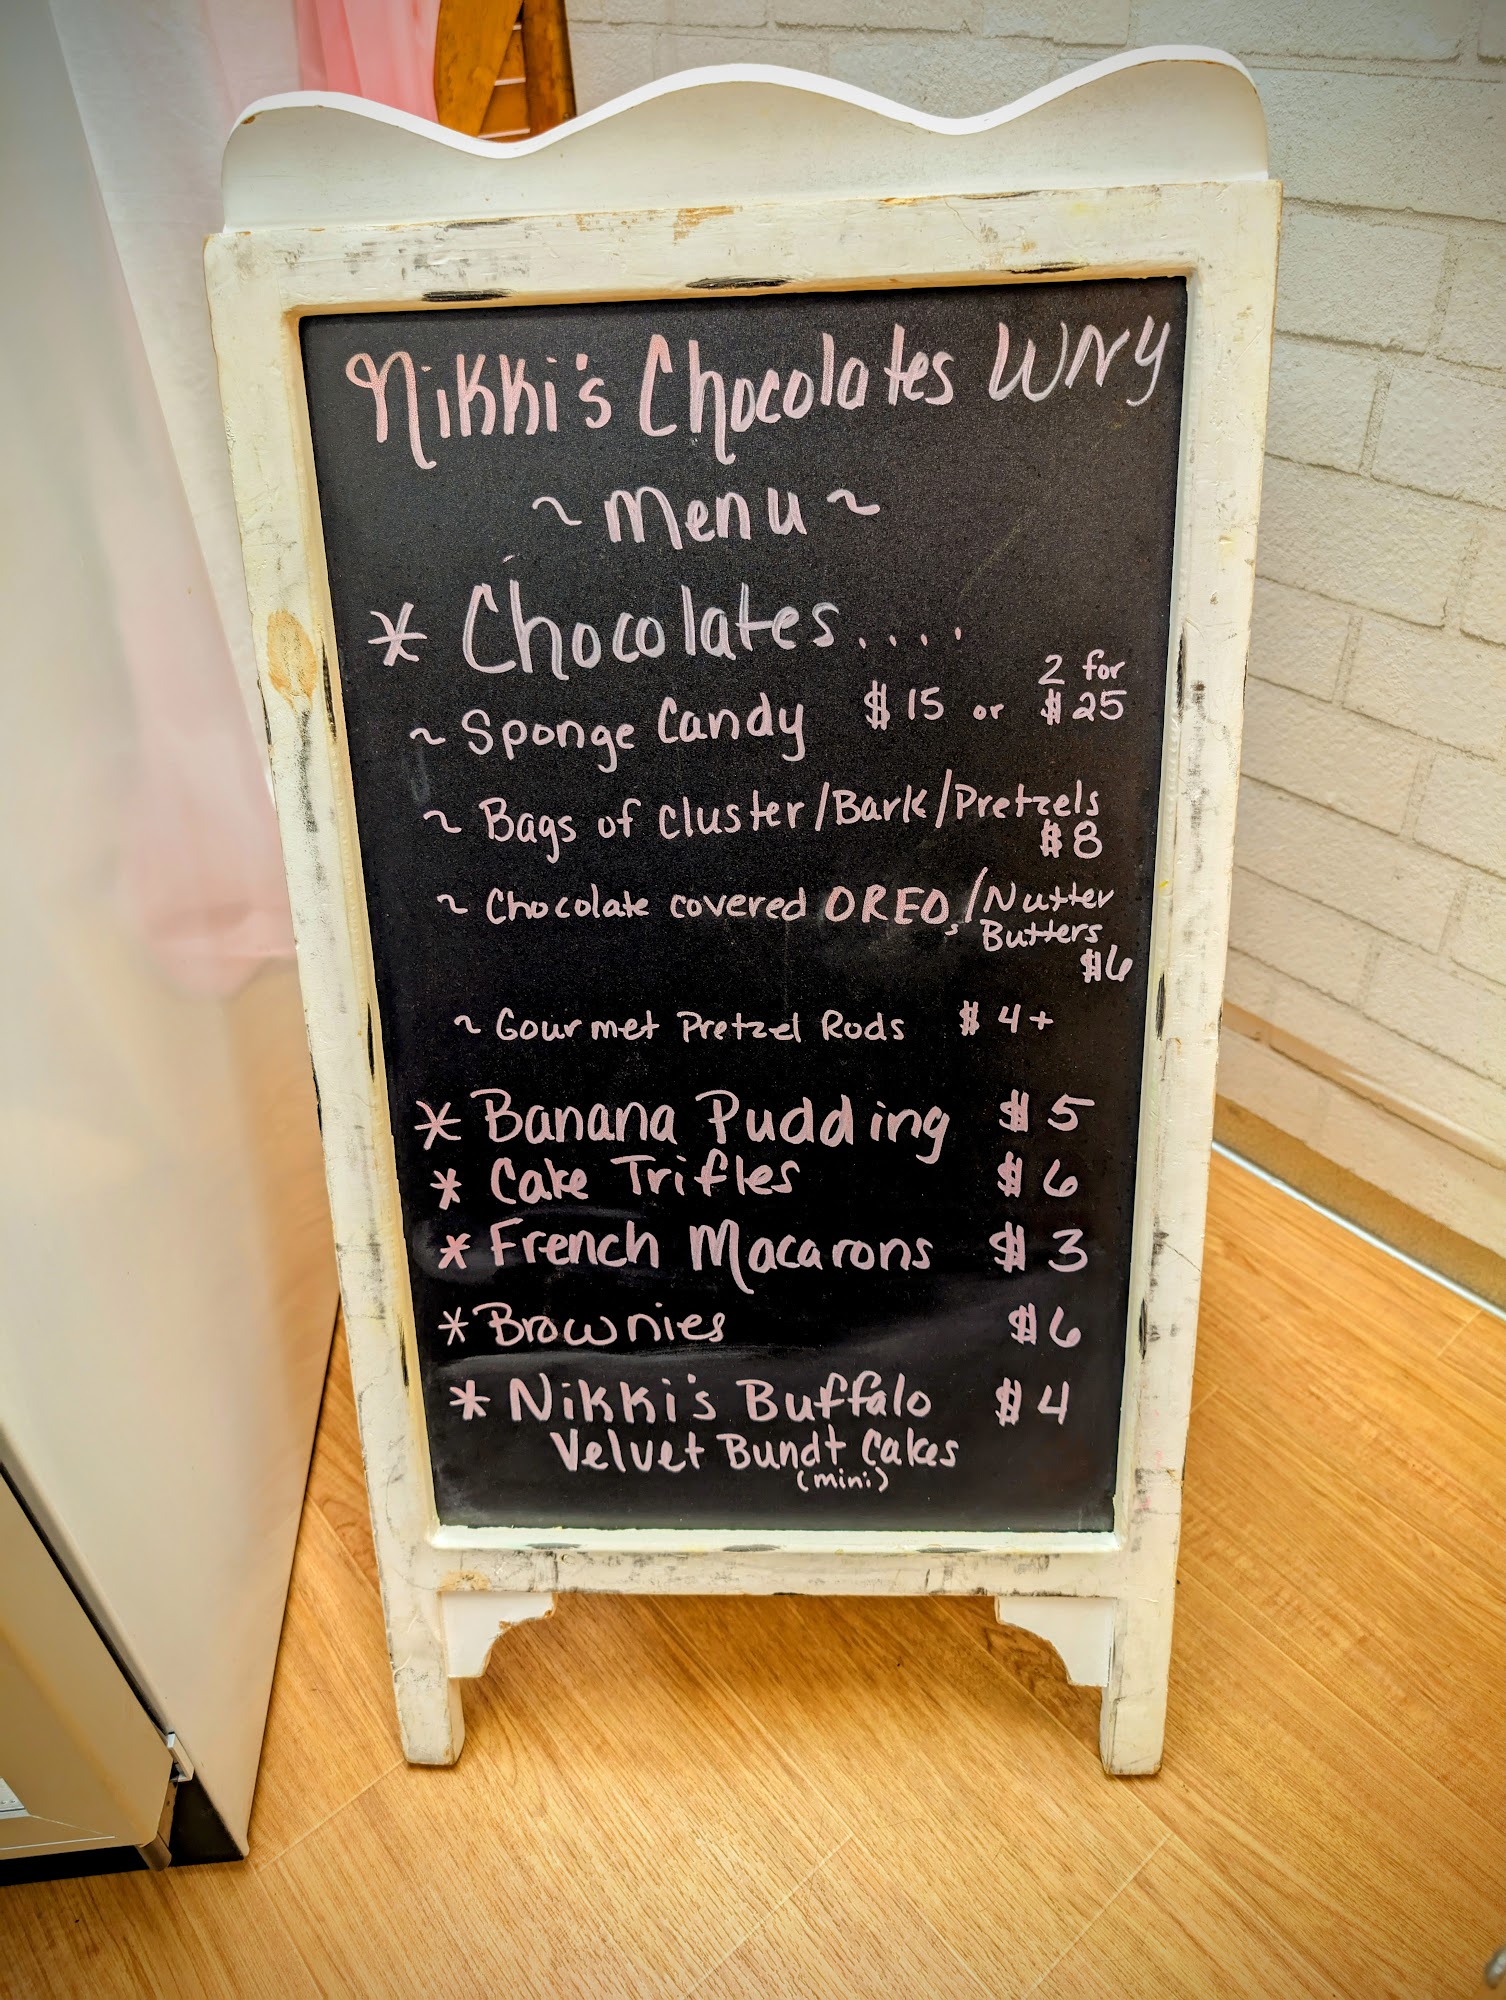 Nikki's Chocolates WNY
~ Menu ~
* Chocolates....
~ Sponge Candy $15 or 2 for $25
~ Bags of Cluster/Bark/Pretzels
$8
~ Chocolate covered OREO,s/Nutter
Butters
$6
~ Gourmet Pretzel Rods $4+
* Banana Pudding $5
* Cake Trifles $6
* French Macarons $3
* Brownies $6
* Nikki's Buffalo $4
Velvet Bundt Cakes
(mini)